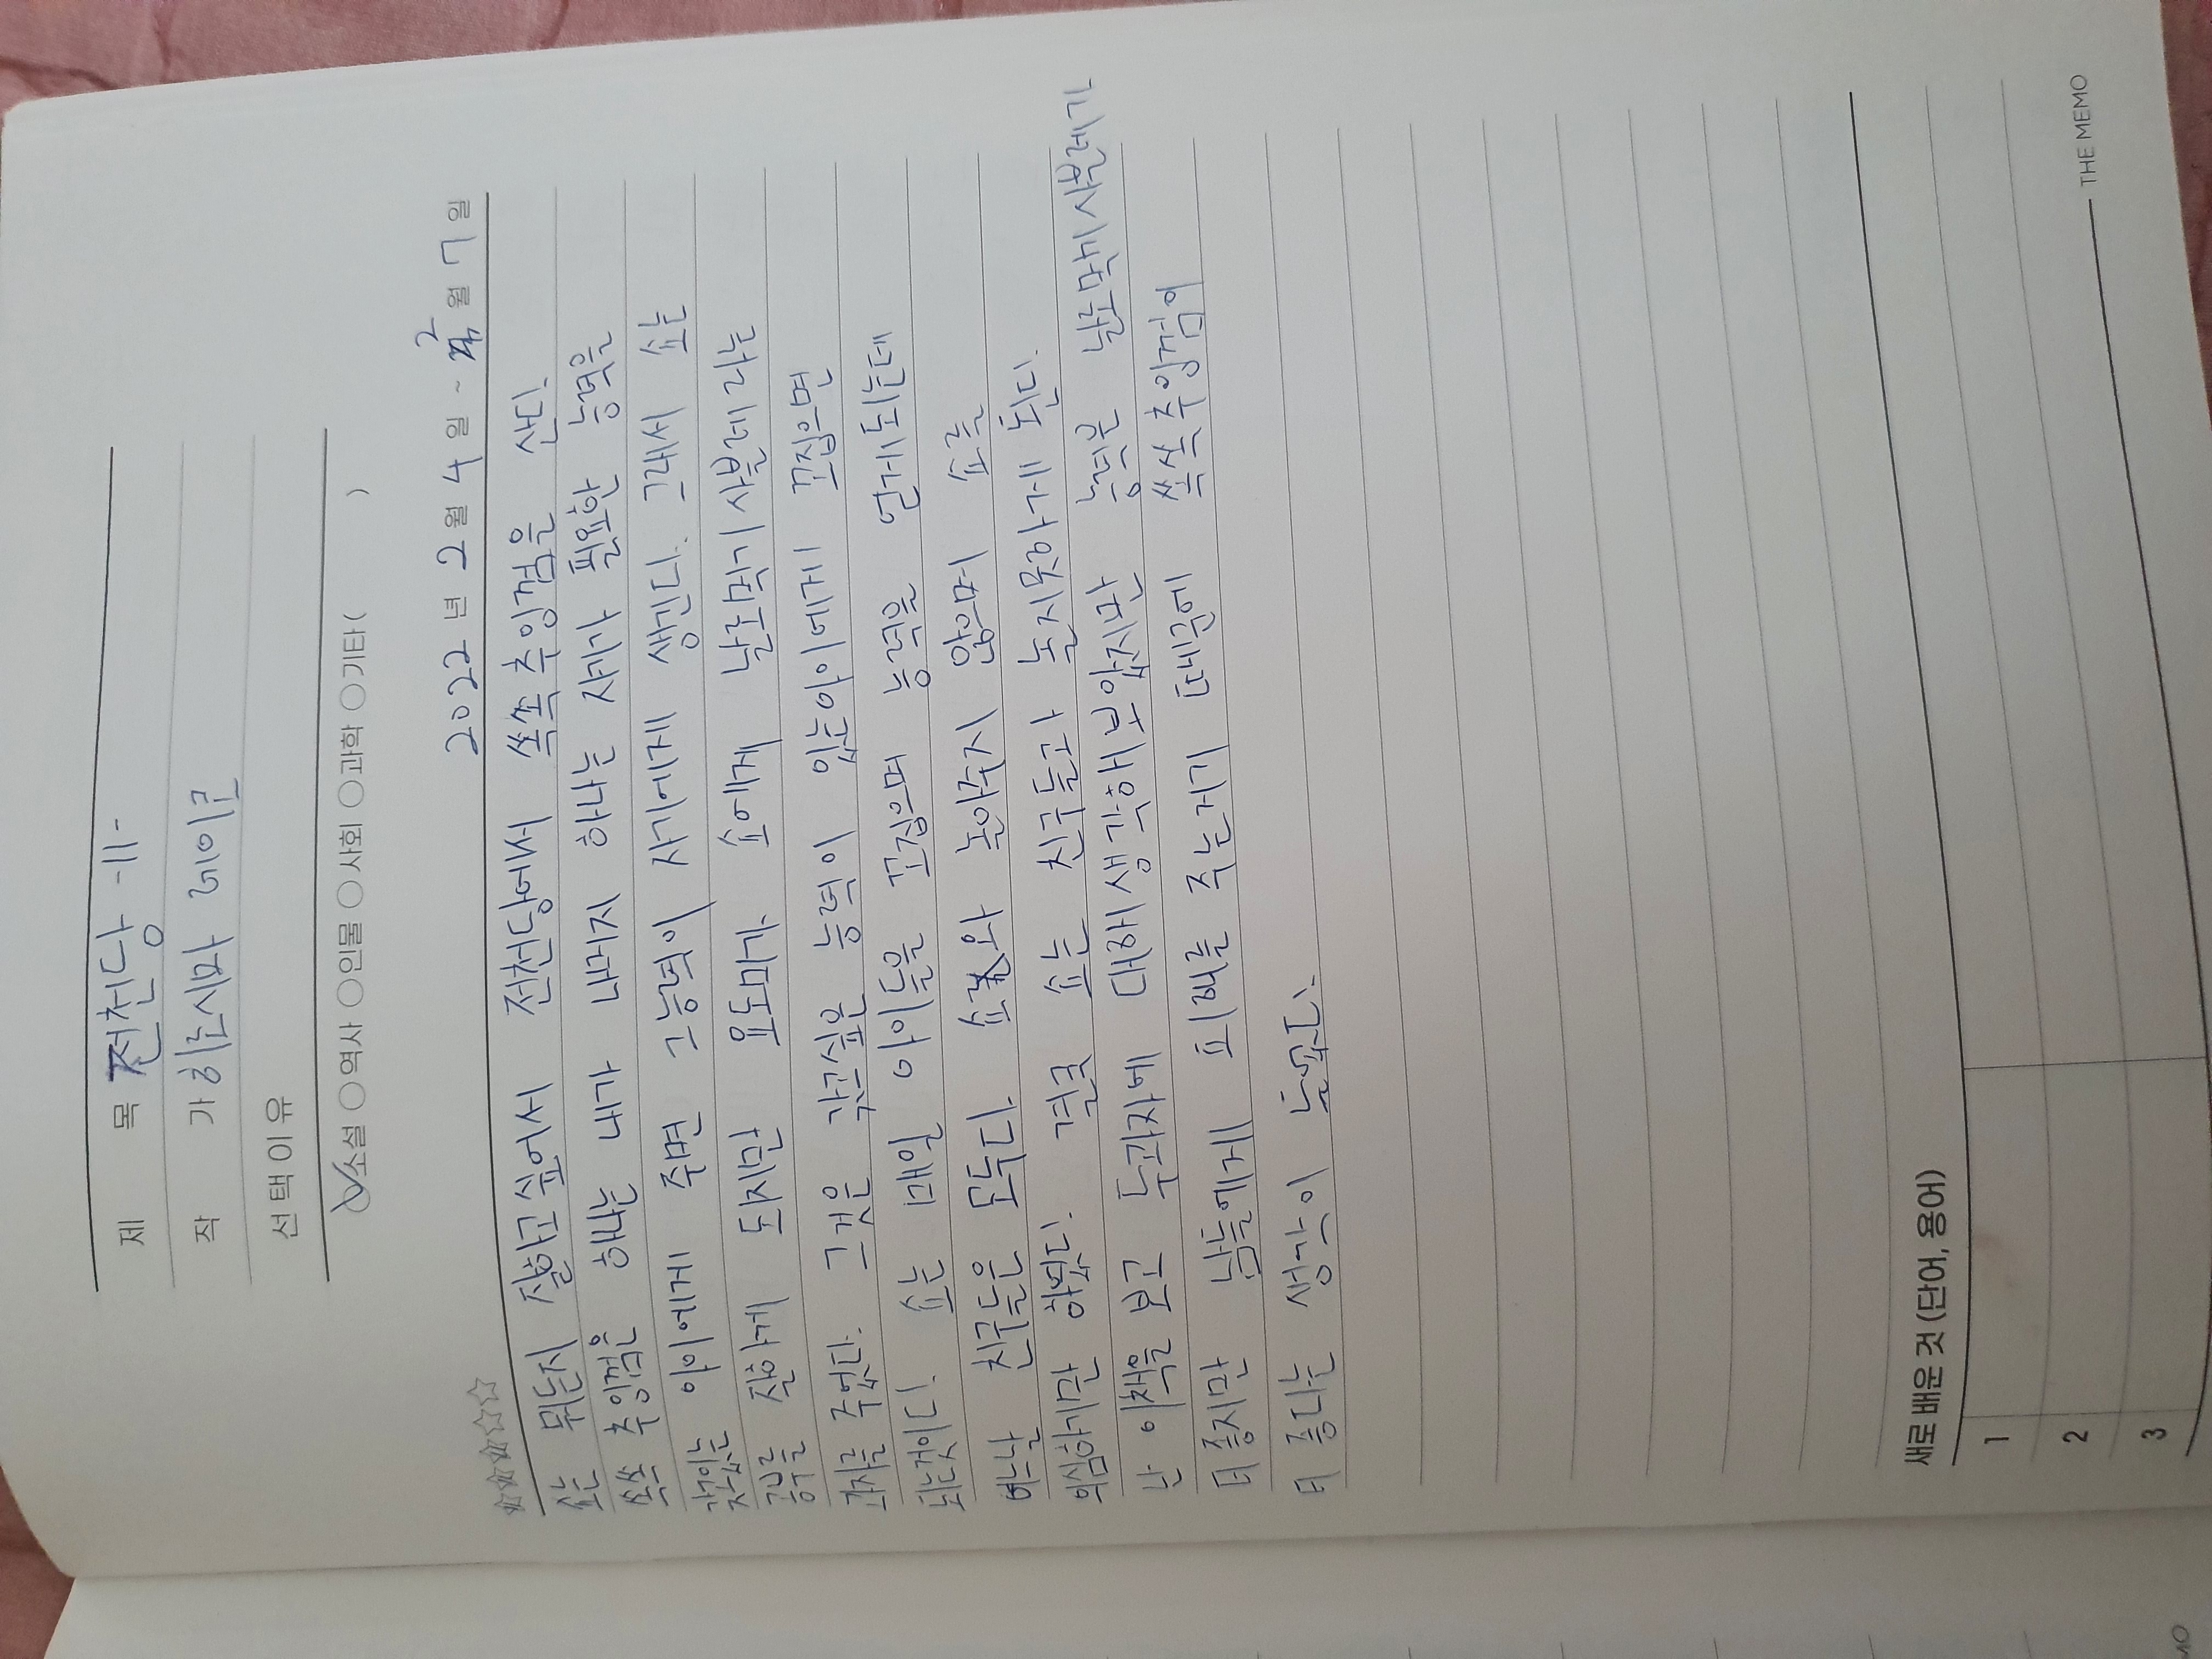 제 목 전천당 -11-
작 가 히로시마 레이코
선택이유
소설 역사 인물 사회 과학 기타( )
2022 년 2 월 4 일 ~ 2 월 7 일
쇼는 뭐든지 잘하고싶어서 전천당에서 쏙쏙추잉껌을 산다.
쏙쏙 추잉껌은 하나는 내가 나머지 하나는 자기가 필요한 능력을
갖고있는 아이에게 주면 그능력이 자기에게 생긴다. 그래서 쇼는
공부를 잘하게 되지만 요도미가 쇼에게 날로먹기사블레라는
과자를 주었다. 그것은 갖고싶은 능력이 있는아이에게 꼬집으면
되는것이다! 쇼는 매일 아이들을 꼬집으며 능력을 얻게되는데
어느날 친구들은 모두다 쇼와 놀아주지 않으며 쇼를
의심하기만 하였다! 결국 쇼는 친구들과 놀지못하게 된다.
난 이책을 보고 두과자에 대해생각해보았지만 능력은 날로먹기사블레가
더 좋지만 남들에게 피해를 주는거기 때문에 쏙쏙추잉껌이
더 좋다는 생각이
새로 배운 것 (단어, 용어)
1
2
3
THE MEMO